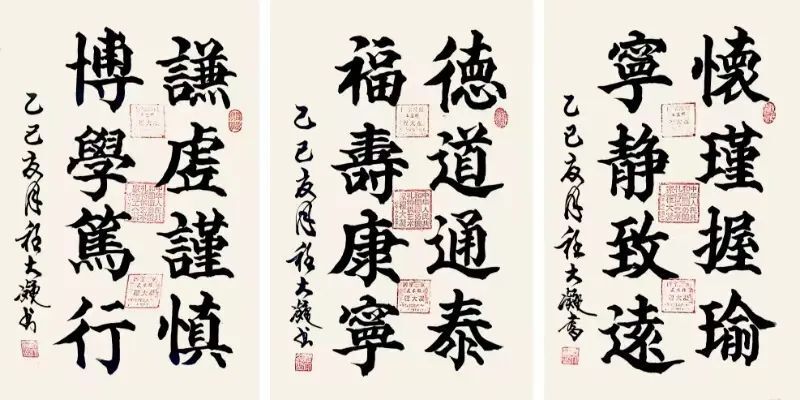 謙虛謹慎
博學篤行
乙巳夏月程大凝书
德道通泰
福壽康寧
乙巳夏月程大凝书
懷瑾握瑜
寧静致遠
乙巳夏月程大凝書